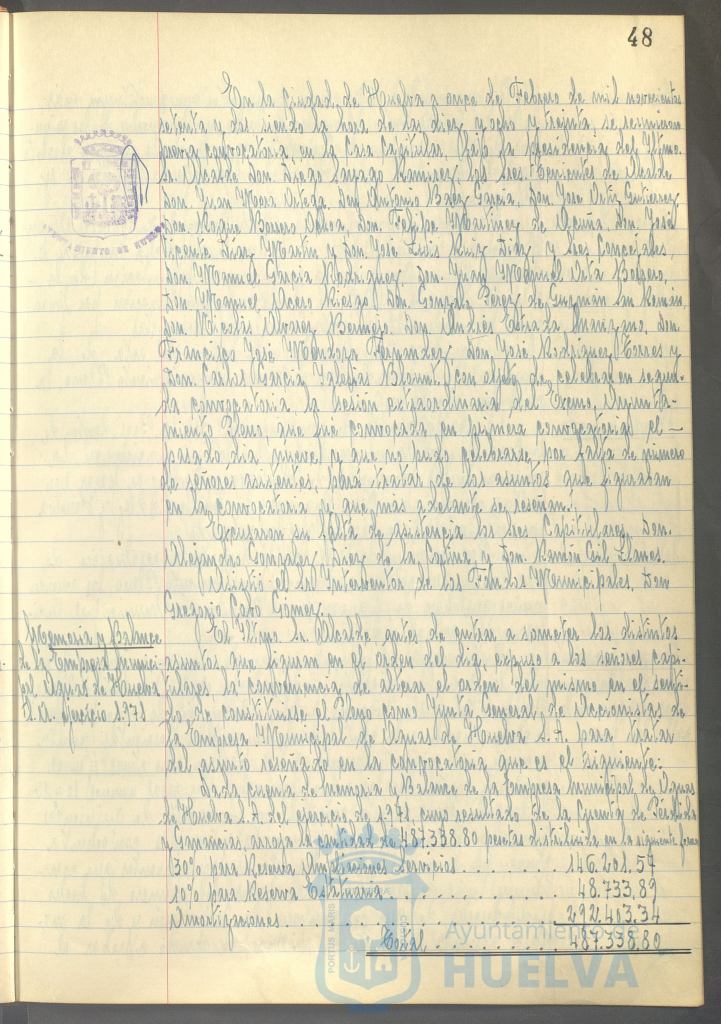 48
En la Ciudad de Huelva a once de Febrero de mil novecientos
setenta y dos siendo la hora de las diez y ocho y treinta, se reunieron
previa convocatoria, en la Casa Capitular, bajo la presidencia del Iltmo.
Sr. Alcalde Don Diego Ramirez, los Sres. Tenientes de Alcalde
Don Juan Mora Ortega, Don Antonio Baez Garcia, Don José Ortiz Gutierrez
Don Roque Borrero Ochoa, Don Felipe Martinez de Acuña, Don José
Vicente Díaz Martin y Don José Luis Ruiz Díaz, y Sres Concejales,
Don Manuel Garcia Rodriguez, Don Juan Manuel Ortá Borrero,
Don Manuel Acero Riesgo, Don Gonzalo Pérez de Guzmán San Román,
Don Nicolás Alvarez Bermejo, Don Andrés Estrada Manzano, Don
Francisco José Mendoza Fernandez, Don José Rodriguez Torres y
Don Carlos Garcia Iglesias Blount, con objeto de celebrar en segun-
da convocatoria, la sesión extraordinaria del Excmo. Ayunta-
miento Pleno, que fué convocada en primera convocatoria el
pasado día nueve y que no pudo celebrarse por falta de número
de señores asistentes, para tratar de los asuntos que figuraban
en la convocatoria y que mas adelante se reseñan.
Excusaron su falta de asistencia los Sres Capitulares, Don.
Alejandro Gonzalez Diez de la Cortina, y Don. Ramón Gil Llanes.
Asistió el Sr Interventor de los Fondos Municipales, Don
Gregorio Caro Gómez.
El Iltmo Sr. Alcalde antes de entrar a someter los distintos
asuntos, que figuran en el orden del día, expuso a los señores capi-
tulares la conveniencia de alterar el orden del mismo en el senti-
do de constituirse el Pleno como Junta General de Accionistas de
la Empresa Municipal de Aguas de Huelva S.A. para tratar
del asunto reseñado en la convocatoria que es el siguiente:
Memoria y Balance
de la Empresa Munici-
pal Aguas de Huelva
S.A. ejercicio 1971
Dada cuenta de memoria y Balance de la Empresa municipal de Aguas
de Huelva S.A. del ejercicio de 1971, cuyo resultado de la Cuenta de Pérdidas
y Ganancias, arroja la cantidad de 487.338.80 pesetas distribuida en la siguiente forma
30% para Reserva Ampliaciones servicios ........ 146.201.57
10% para Reserva Estatutaria ........ 48.733,89
Amortizaciones ........ 292.403.34
Total ........ 487.338,80
AYUNTAMIENTO DE HUELVA
PORTUS MARIS
Ayuntamiento de
HUELVA